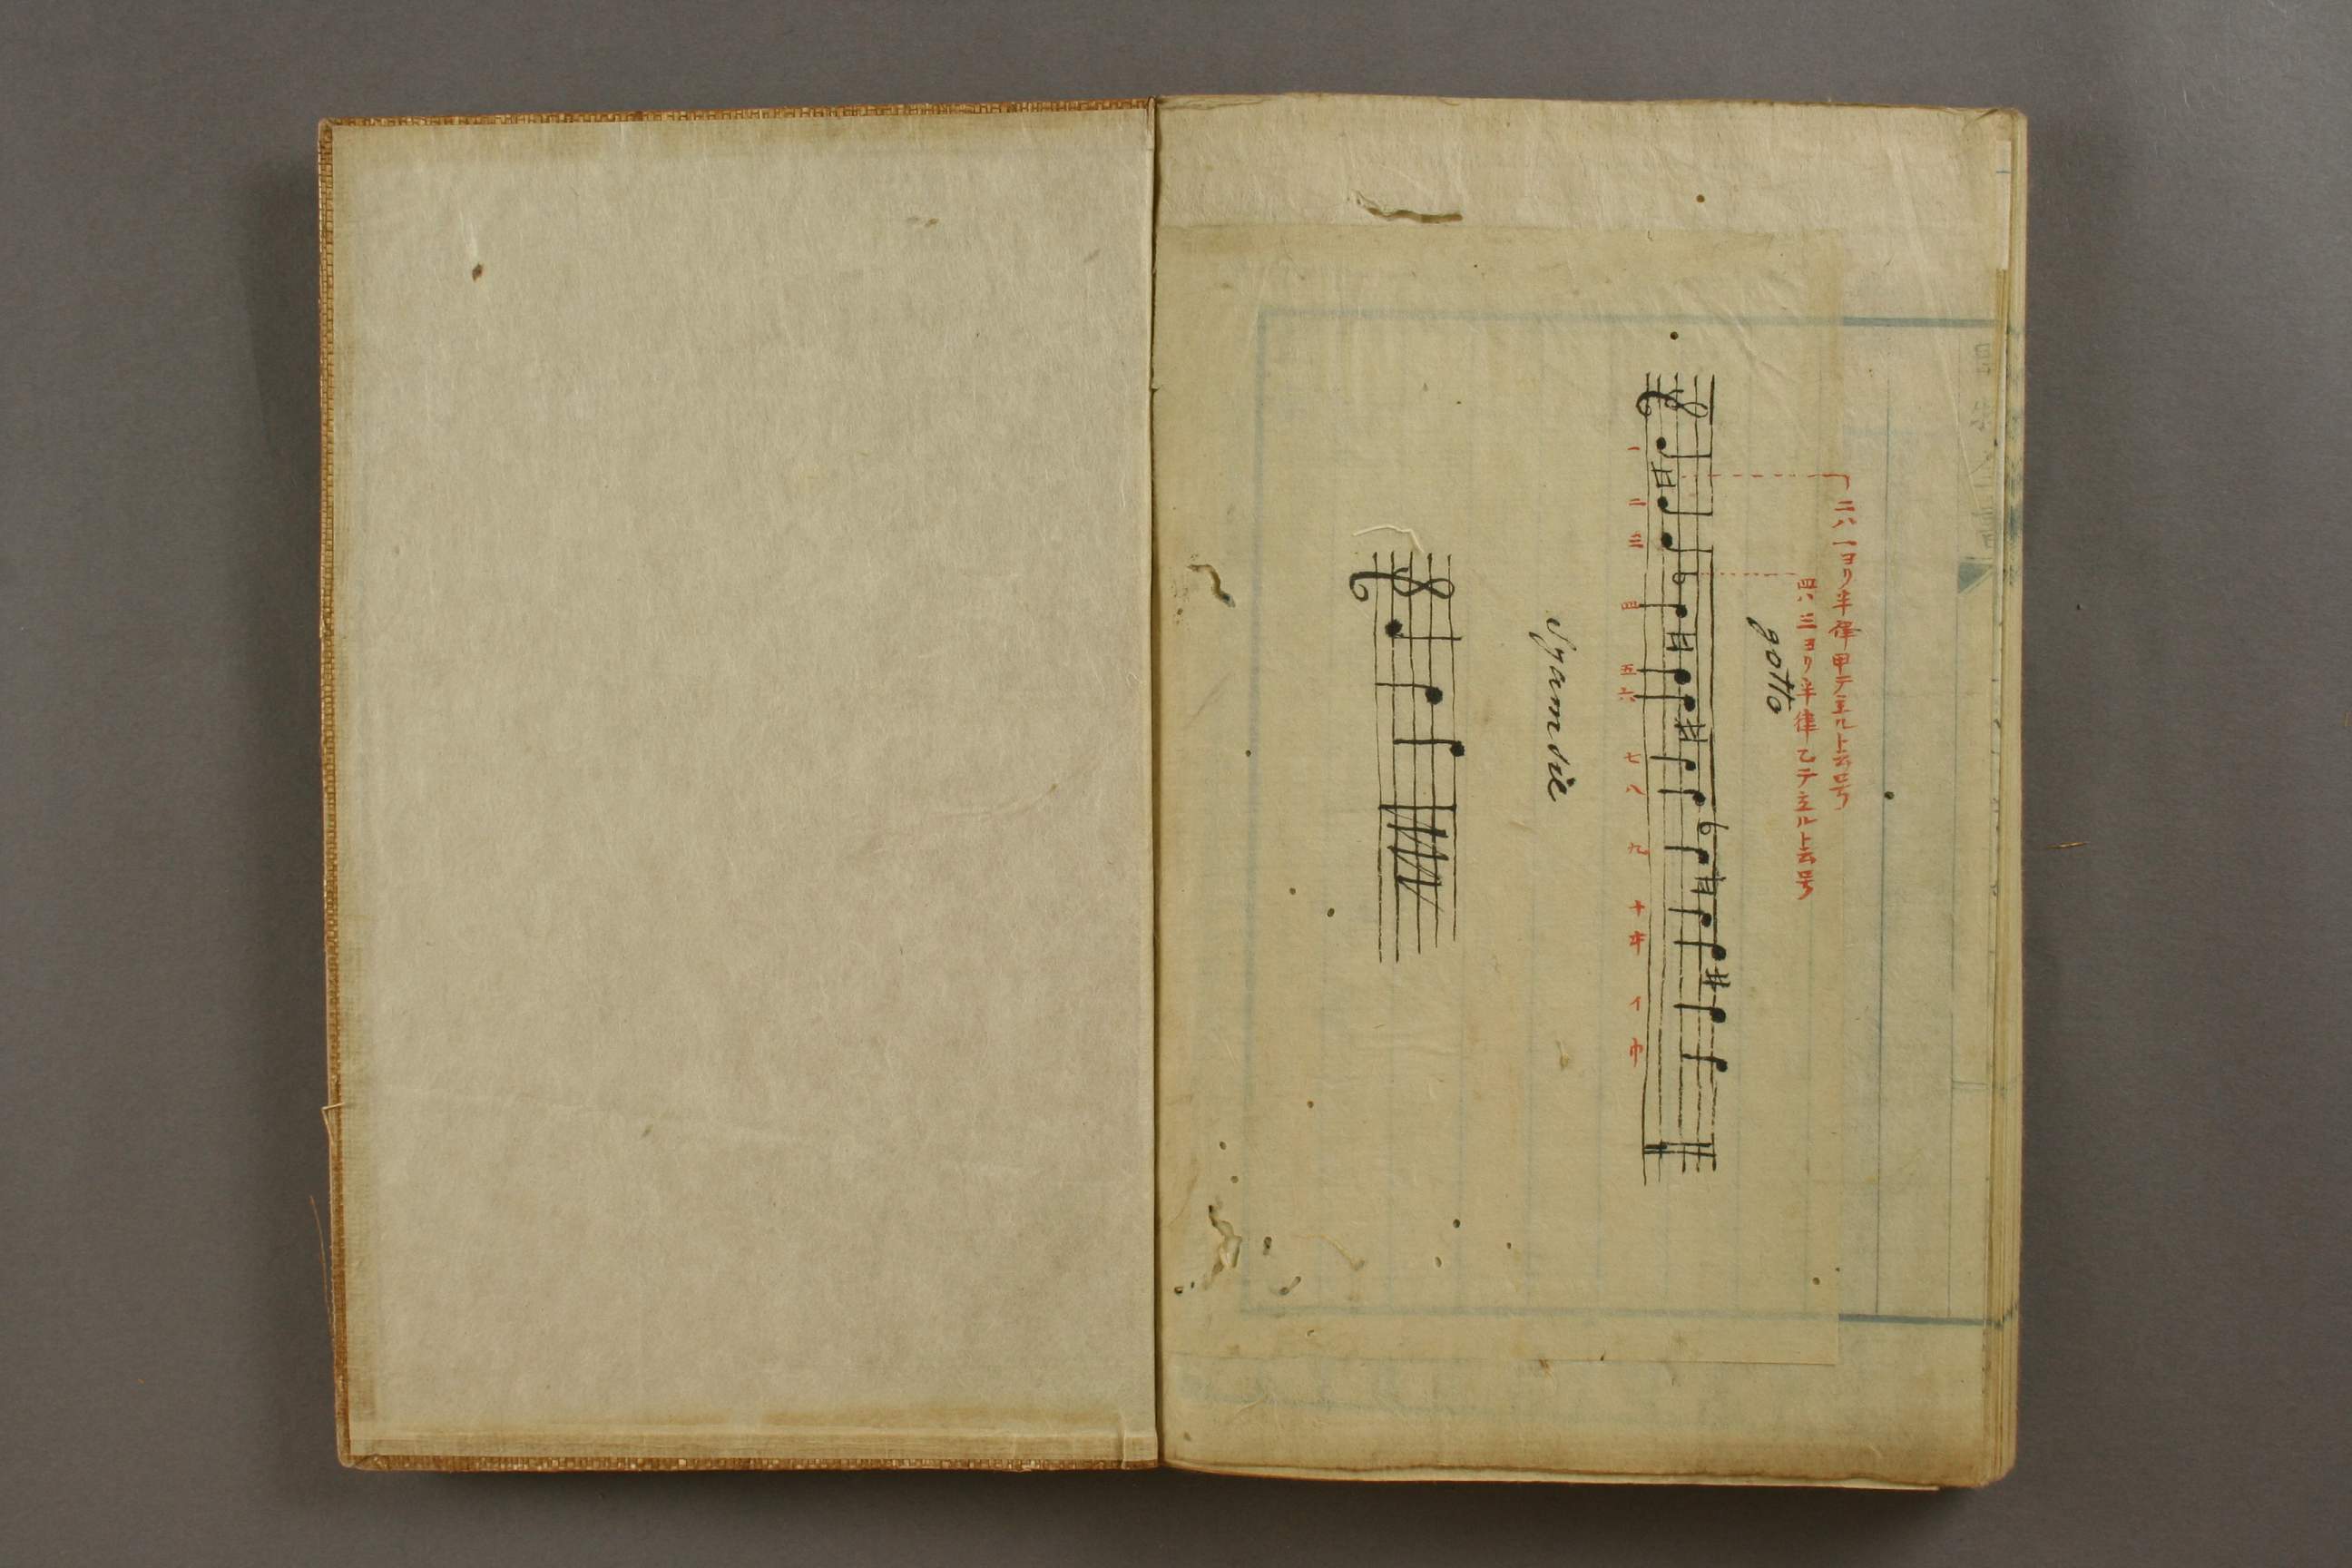 二ハ一ヨリ半律甲テ立ルト云号
四ハ三ヨリ半律乙テ立ルト云号
gotto
一 二 三 四 五 六 七 八 九 十 斗 イ 巾
Syamsie